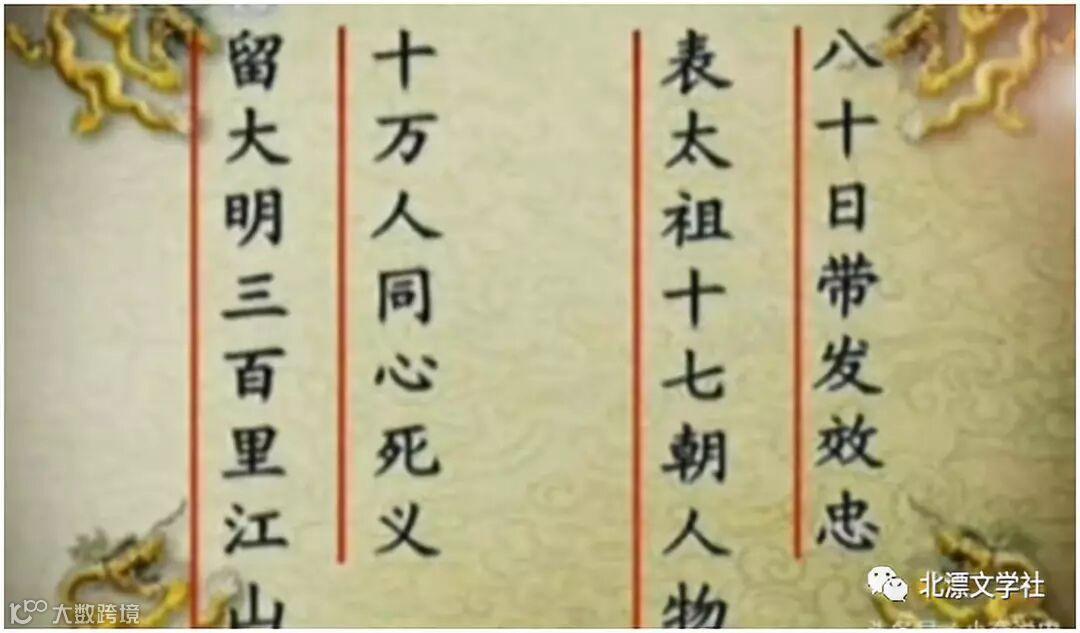 八十日带发效忠
表太祖十七朝人物
十万人同心死义
留大明三百里江山
北漂文学社
大数跨境